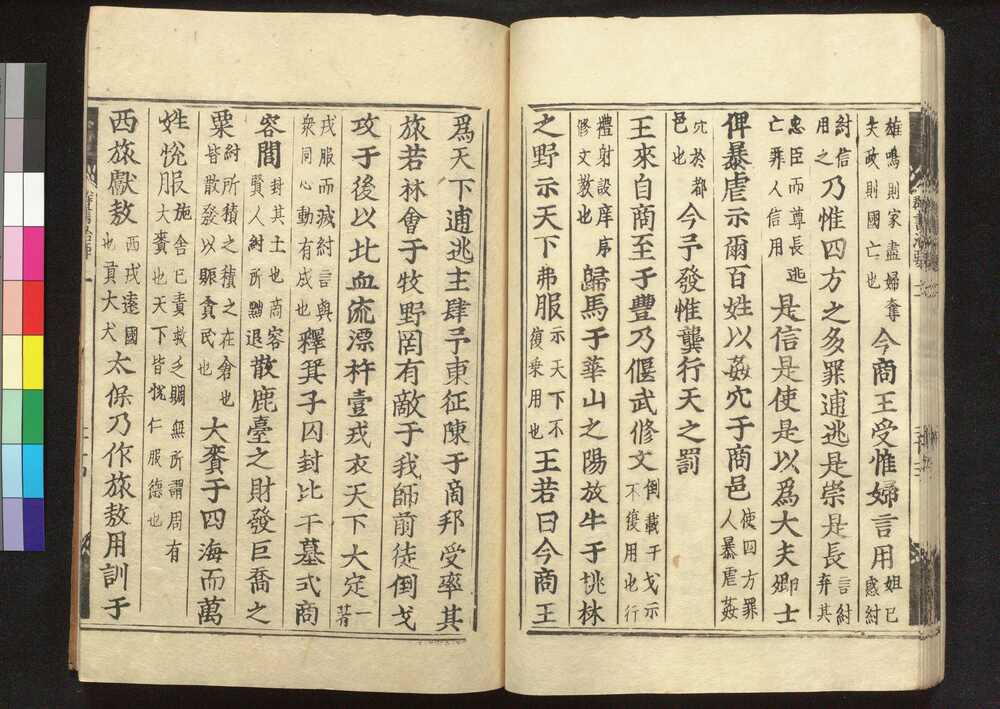 雄鳴則家盡婦奪夫政則國亡也今商王受惟婦言用妲己惑紂
紂信用之乃惟四方之多罪逋逃是崇是長言紂弃其
忠臣而尊長逃亡罪人信用是信是使是以爲大夫卿士
俾暴虐示爾百姓以姦穴于商邑使四方罪人暴虐姦
宄於都邑也今予發惟龔行天之罰
王來自商至于豐乃偃武修文倒載干戈示不復用也行
禮射設庠序修文教也歸馬于華山之陽放牛于桃林
之野示天下弗服示天下不復乗用也王若曰今商王
爲天下逋逃主肆予東征陳于商邦受率其
旅若林會于牧野罔有敵于我師前徒倒戈
攻于後以北血流漂杵壹戎衣天下大定一著
戎服而滅紂言與衆同心動有成也釋箕子囚封比干墓式商
容閭封其土也商容賢人紂所黜退散鹿臺之財發巨喬之
粟紂所積之積之在倉也皆散發以賑貧民也大賚于四海而萬
姓悅服施舍已責救乏賙無所謂周有大賚也天下皆悅仁服德也
西旅獻獒西戎遠國也貢大犬太保乃作旅獒用訓于